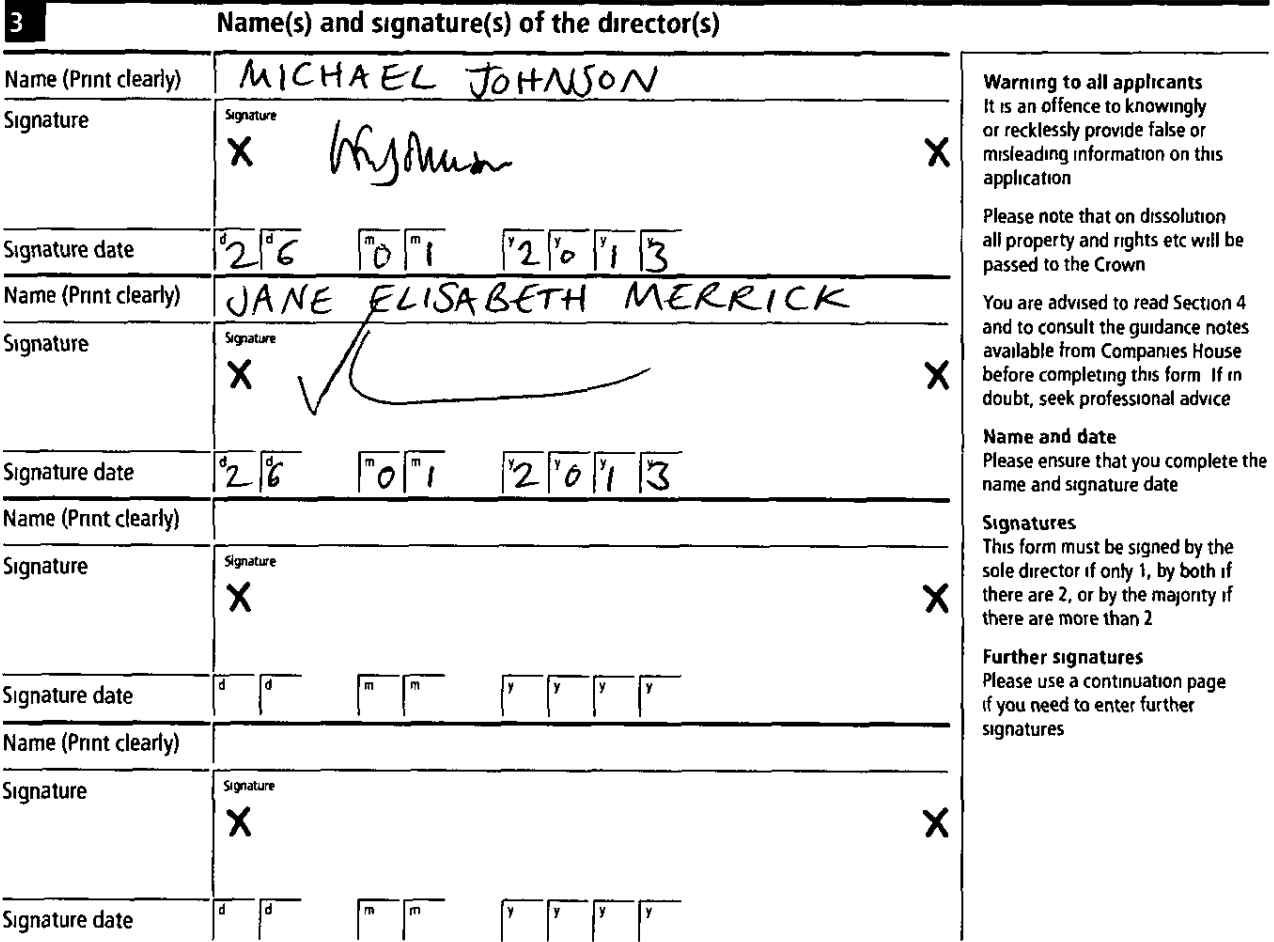 3 Name(s) and signature(s) of the director(s)
Name (Print clearly) MICHAEL JOHNSON
Signature Signature
X X
Signature date d2 d6 m0 m1 y2 y0 y1 y3
Name (Print clearly) JANE ELISABETH MERRICK
Signature Signature
X X
Signature date d2 d6 m0 m1 y2 y0 y1 y3
Name (Print clearly)
Signature Signature
X X
Signature date d d m m y y y y
Name (Print clearly)
Signature Signature
X X
Signature date d d m m y y y y
Warning to all applicants
It is an offence to knowingly
or recklessly provide false or
misleading information on this
application
Please note that on dissolution
all property and rights etc will be
passed to the Crown
You are advised to read Section 4
and to consult the guidance notes
available from Companies House
before completing this form If in
doubt, seek professional advice
Name and date
Please ensure that you complete the
name and signature date
Signatures
This form must be signed by the
sole director if only 1, by both if
there are 2, or by the majority if
there are more than 2
Further signatures
Please use a continuation page
if you need to enter further
signatures